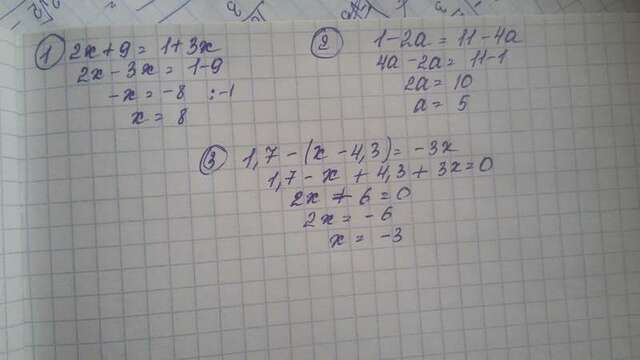 1 2x + 9 = 1 + 3x
2x - 3x = 1 - 9
-x = -8 :-1
x = 8
2 1 - 2a = 11 - 4a
4a - 2a = 11 - 1
2a = 10
a = 5
3 1,7 - (x - 4,3) = -3x
1,7 - x + 4,3 + 3x = 0
2x + 6 = 0
2x = -6
x = -3